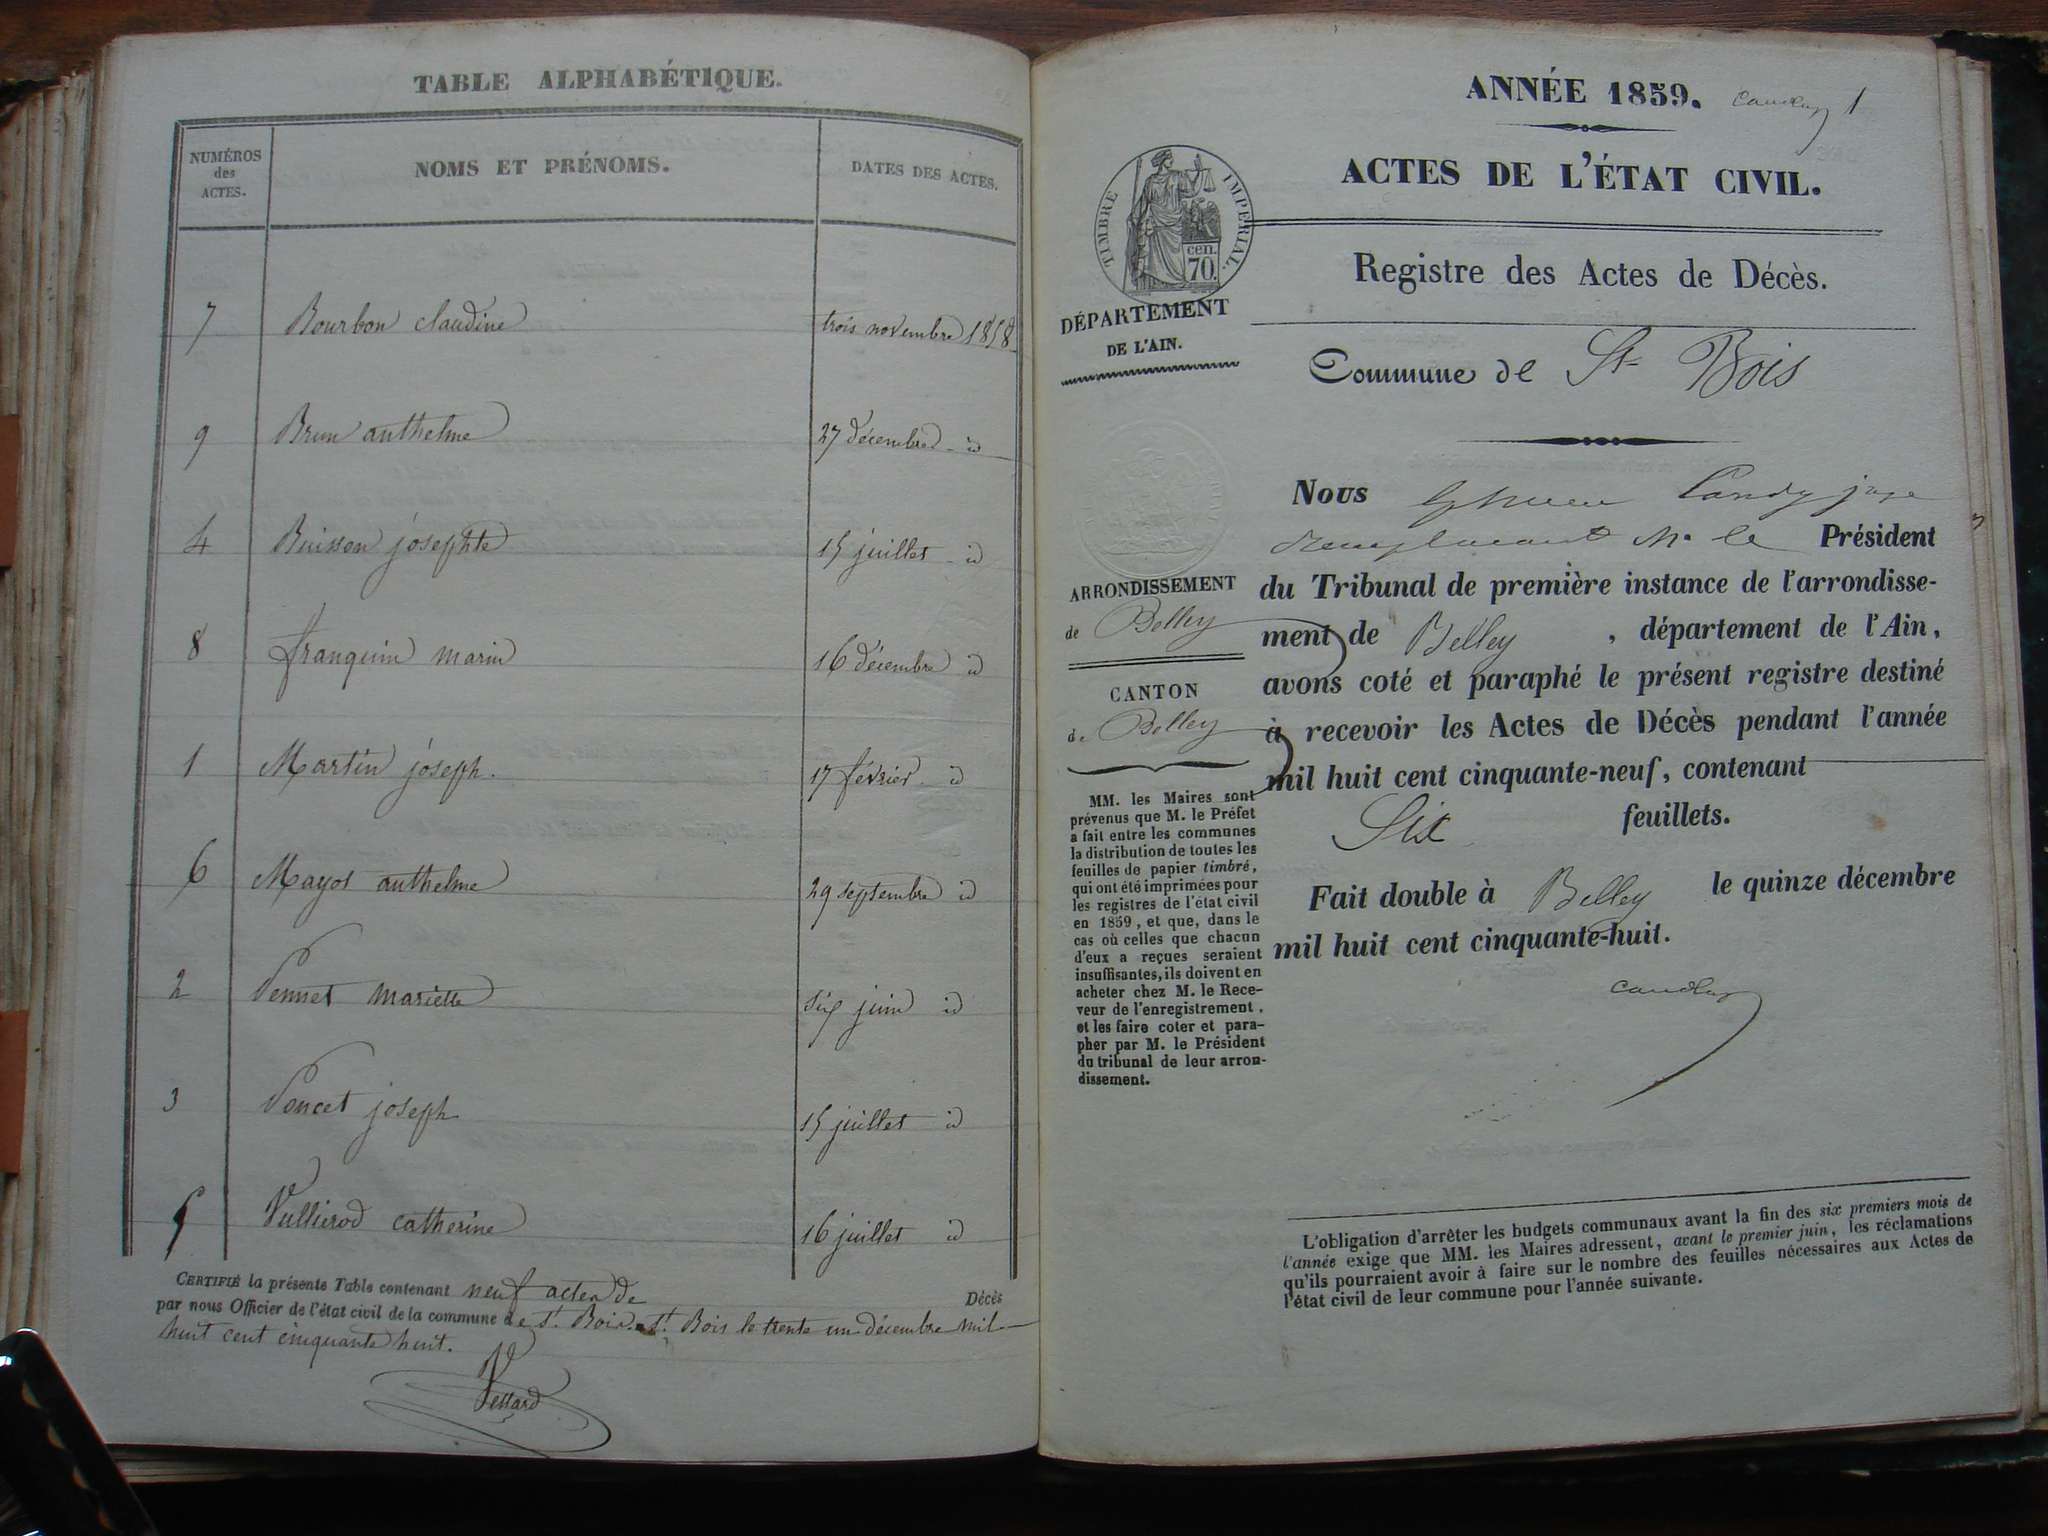 TABLE ALPHABÉTIQUE.
NUMÉROS des ACTES. NOMS ET PRÉNOMS. DATES DES ACTES.
7 Bourbon claudine trois novembre 1858
9 Brun anthelme 27 décembre id
4 Buisson josephte 15 juillet id
8 franquin marin 16 décembre id
1 Martin joseph. 17 février id
6 Mayot anthelme 29 septembre id
2 Pennet mariette six juin id
3 Poncet joseph 15 juillet id
5 Vullierod catherine 16 juillet id
CERTIFIÉ la présente Table contenant neuf actes de Décès
par nous Officier de l'état civil de la commune de St. Bois. St. Bois le trente un décembre mil
huit cent cinquante huit.
ANNÉE 1859. 1
ACTES DE L'ÉTAT CIVIL.
TIMBRE IMPERIAL.
cen.
70.
Registre des Actes de Décès.
DÉPARTEMENT
DE L'AIN.
Commune de St Bois
ARRONDISSEMENT
de Belley
CANTON
de Belley
MM. les Maires sont
prévenus que M. le Préfet
a fait entre les communes
la distribution de toutes les
feuilles de papier timbré,
qui ont été imprimées pour
les registres de l'état civil
en 1859, et que, dans le
cas où celles que chacun
d'eux a reçues seraient
insuffisantes, ils doivent en
acheter chez M. le Rece-
veur de l'enregistrement,
et les faire coter et para-
pher par M. le Président
du tribunal de leur arron-
dissement.
Nous juge
remplacant Mr le Président
du Tribunal de première instance de l'arrondisse-
ment de Belley, département de l'Ain,
avons coté et paraphé le présent registre destiné
à recevoir les Actes de Décès pendant l'année
mil huit cent cinquante-neuf, contenant
Six feuillets.
Fait double à Belley le quinze décembre
mil huit cent cinquante-huit.
L'obligation d'arrêter les budgets communaux avant la fin des six premiers mois de
l'année exige que MM. les Maires adressent, avant le premier juin, les réclamations
qu'ils pourraient avoir à faire sur le nombre des feuilles nécessaires aux Actes de
l'état civil de leur commune pour l'année suivante.